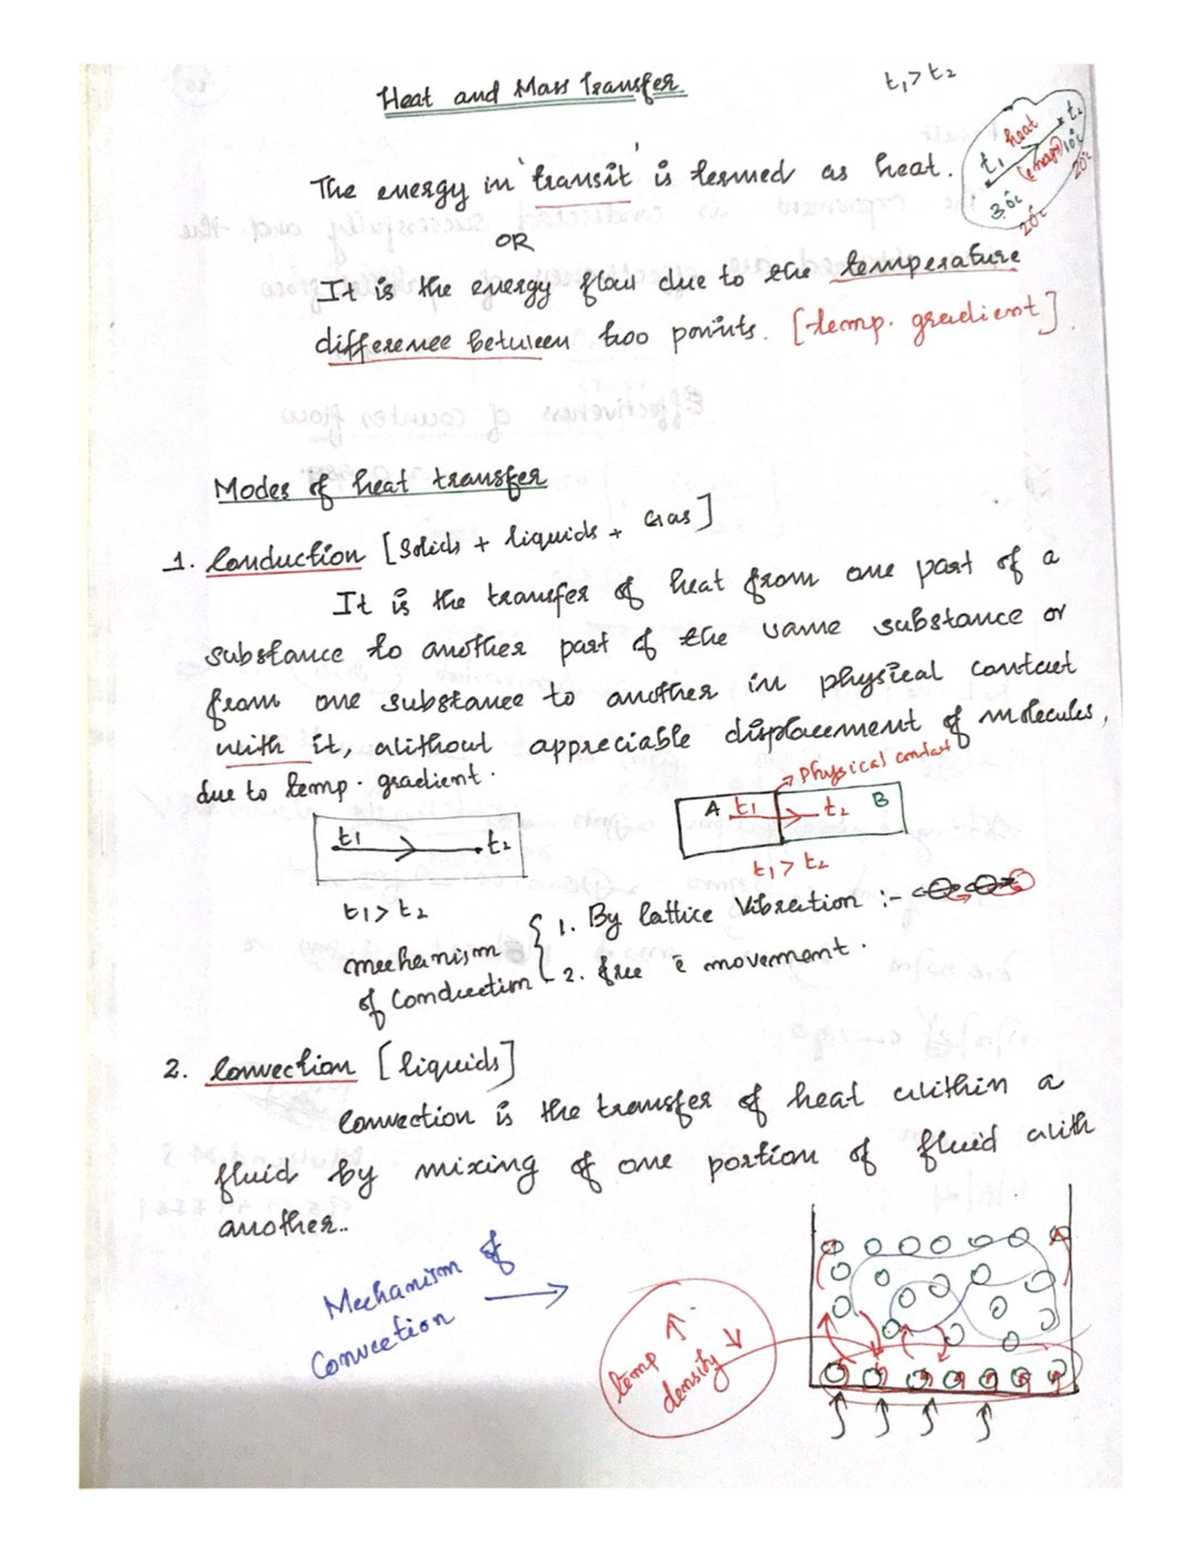 Heat and Mass Transfer
t1 > t2
The energy in 'transit' is termed as heat.
t1 heat t2
(energy) 10°c
30°c 20°c
20°c
OR
It is the energy flow due to the temperature
difference between two points. [temp. gradient].
Modes of heat transfer
1. Conduction [Solids + liquids + Gas]
It is the transfer of heat from one part of a
substance to another part of the same substance or
from one substance to another in physical contact
with it, without appreciable displacement of molecules,
due to temp. gradient.
→ Physical contact
t1 t2
A t1 t2 B
t1 > t2
t1 > t2
mechanism
of Conduction
1. By lattice Vibration :-
2. free e movement.
2. Convection [liquids]
Convection is the transfer of heat within a
fluid by mixing of one portion of fluid with
another..
Mechanism of
Convection
temp ↑
density ↓